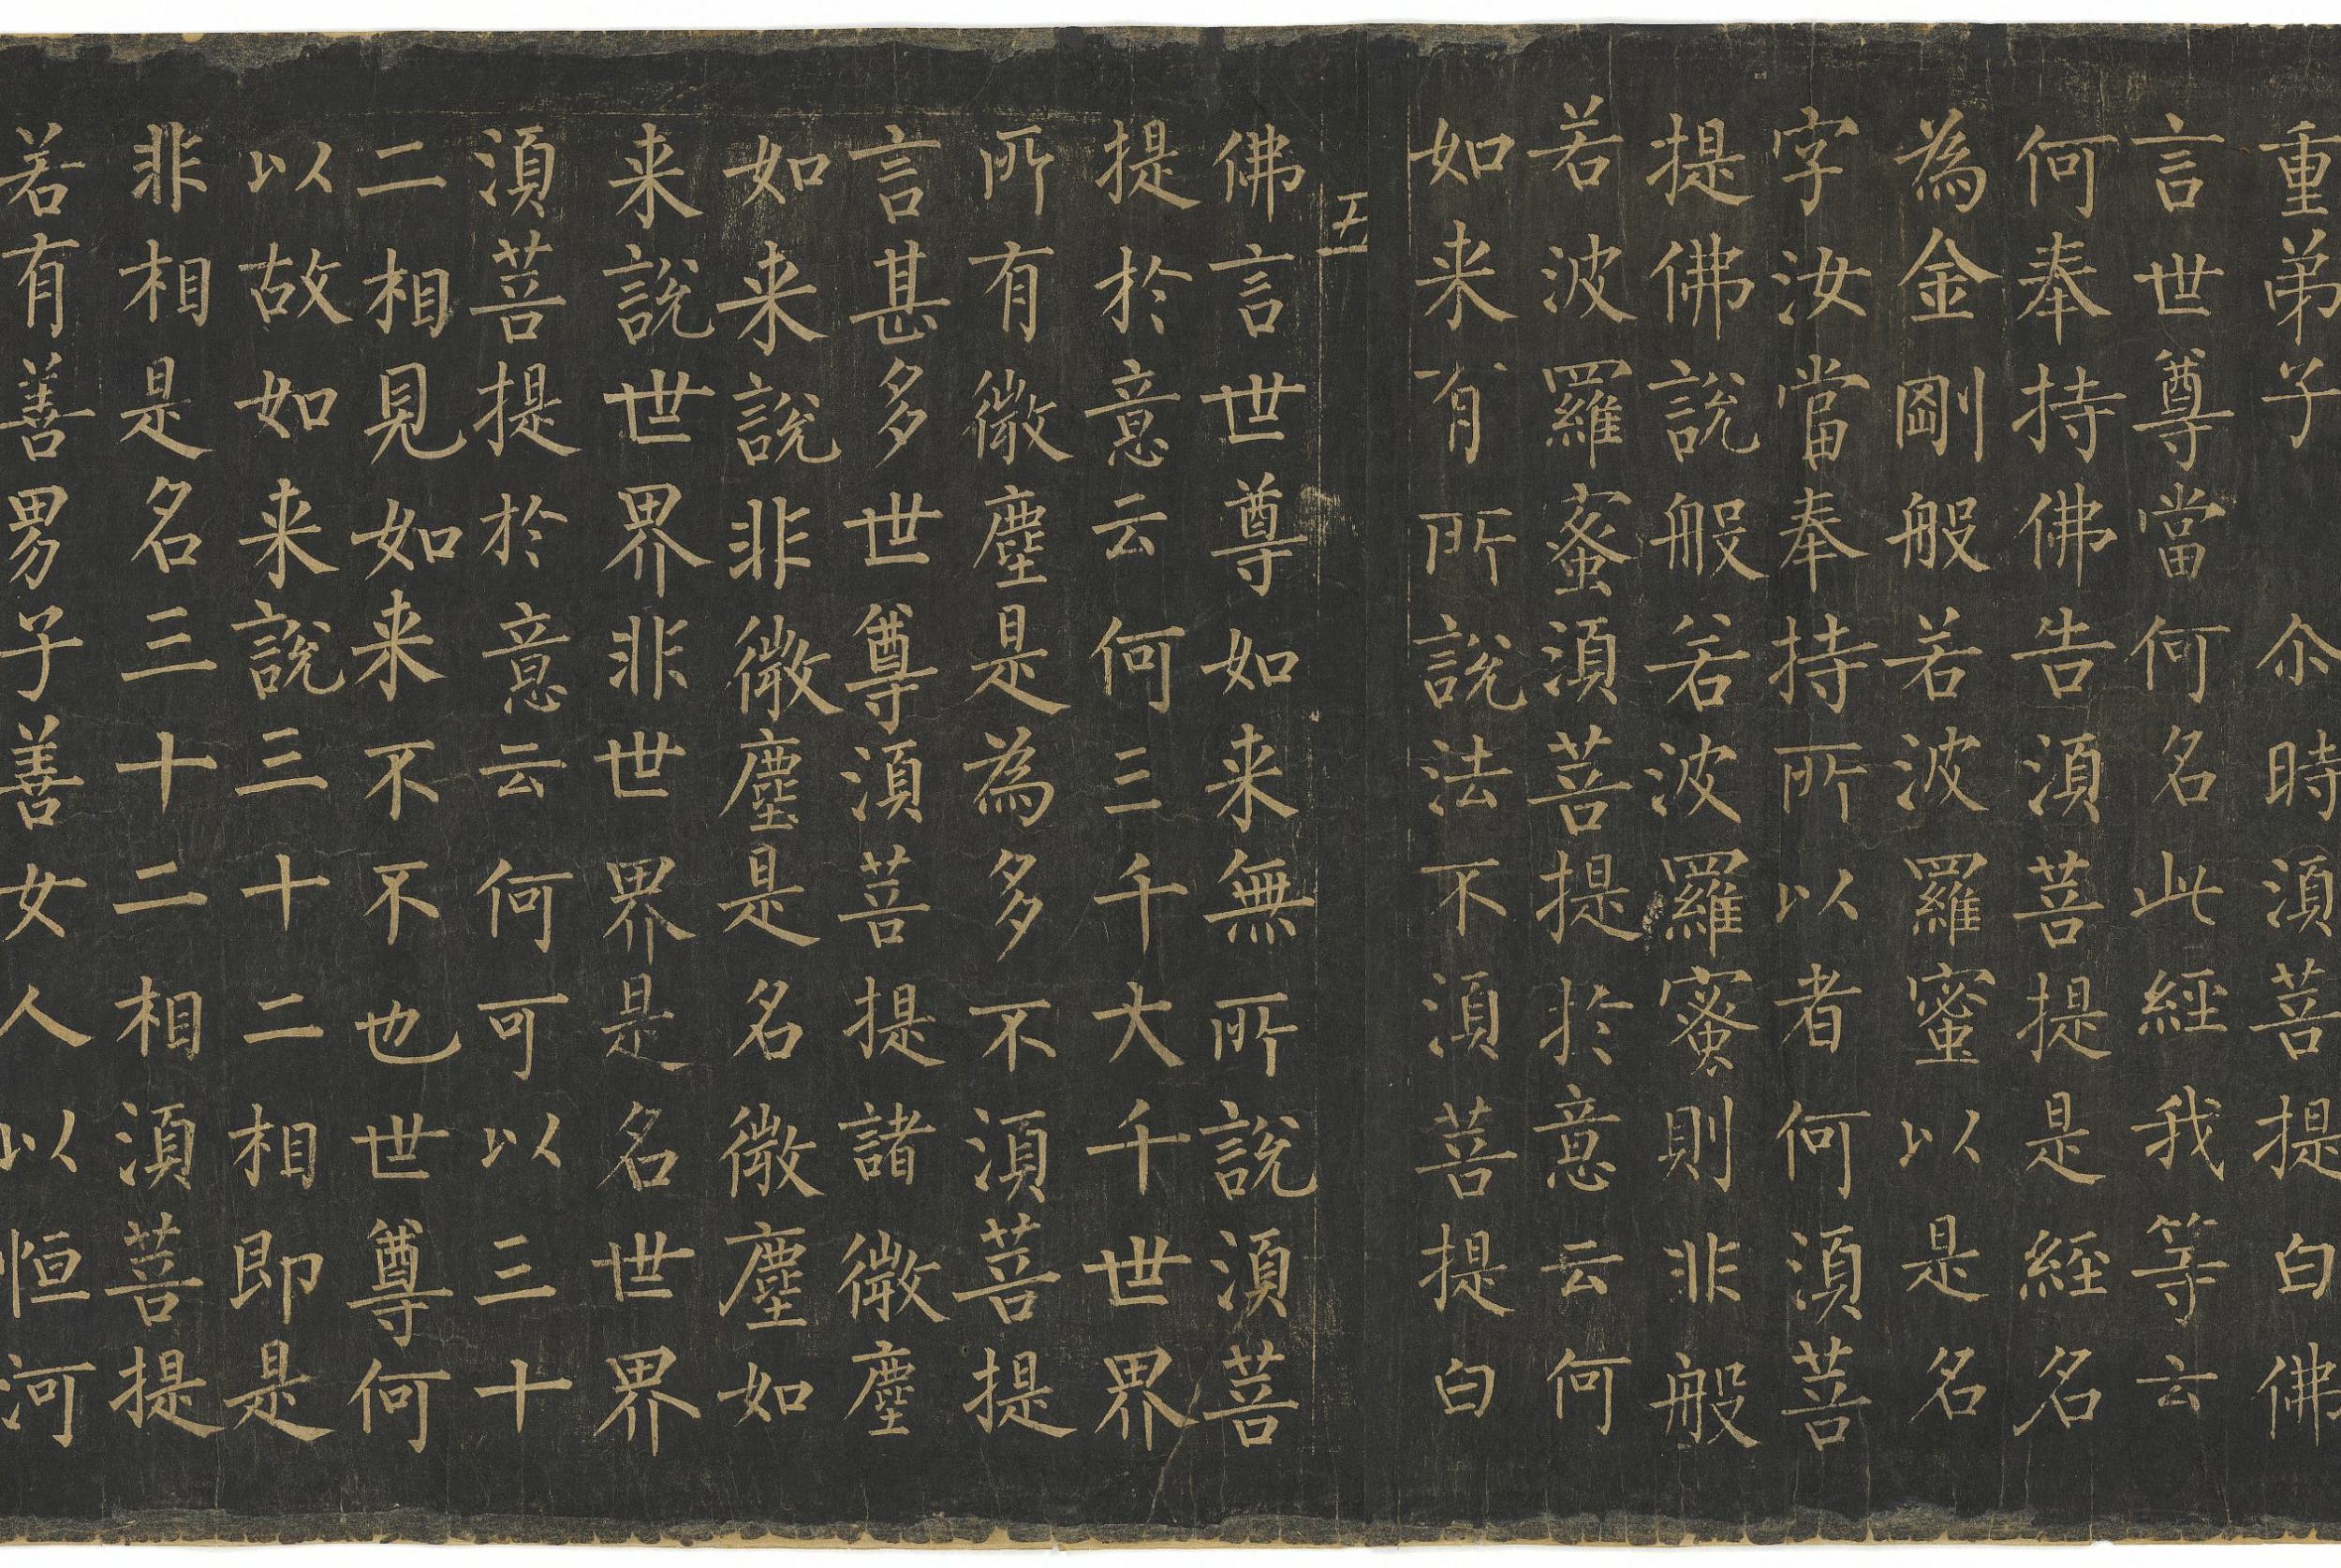 重弟子　尒時湏菩提白佛
言世尊當何名此經我等云
何奉持佛告湏菩提是經名
為金剛般若波羅蜜以是名
字汝當奉持所以者何湏菩
提佛說般若波羅蜜則非般
若波羅蜜湏菩提於意云何
如来有所說法不湏菩提白
五
佛言世尊如来無所說湏菩
提於意云何三千大千世界
所有微塵是為多不湏菩提
言甚多世尊湏菩提諸微塵
如来說非微塵是名微塵如
来說世界非世界是名世界
湏菩提於意云何可以三十
二相見如来不不也世尊何
以故如来說三十二相即是
非相是名三十二相湏菩提
若有善男子善女人以恒河